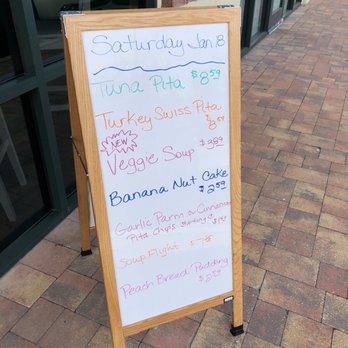 Saturday Jan 18
Tuna Pita $8.59
Turkey Swiss Pita
NEW
Veggie Soup
Banana Nut Cake
$2.59
Garlic Parm & Cinnamon
Pita Chips
Soup Flight
Peach Bread Pudding